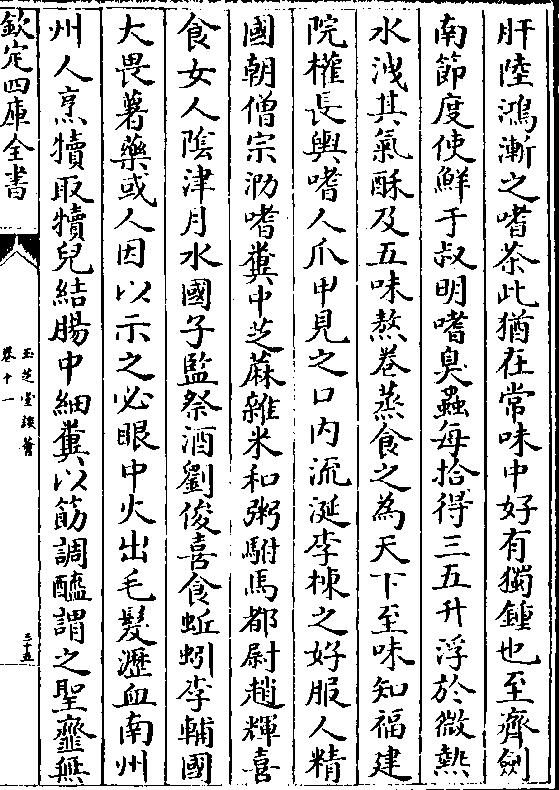 肝陸鴻漸之嗜茶此猶在常味中好有獨鍾也至齊劍
南節度使鮮于叔明嗜臭蟲每拾得三五升浮於微熱
水洩其氣酥及五味熬卷蒸食之為天下至味知福建
院權長輿嗜人爪甲見之口内流涎李棟之好服人精
國朝僧宗泐嗜糞中芝蔴雜米和粥駙馬都尉趙輝喜
食女人陰津月水國子監祭酒劉俊喜食蚯蚓李輔國
大畏薯藥或人因以示之必眼中火出毛髮瀝血南州
州人烹犢取犢兒結腸中細糞以筯調醯謂之聖虀無
欽定四庫全書
玉芝堂談薈
卷十一
三十五